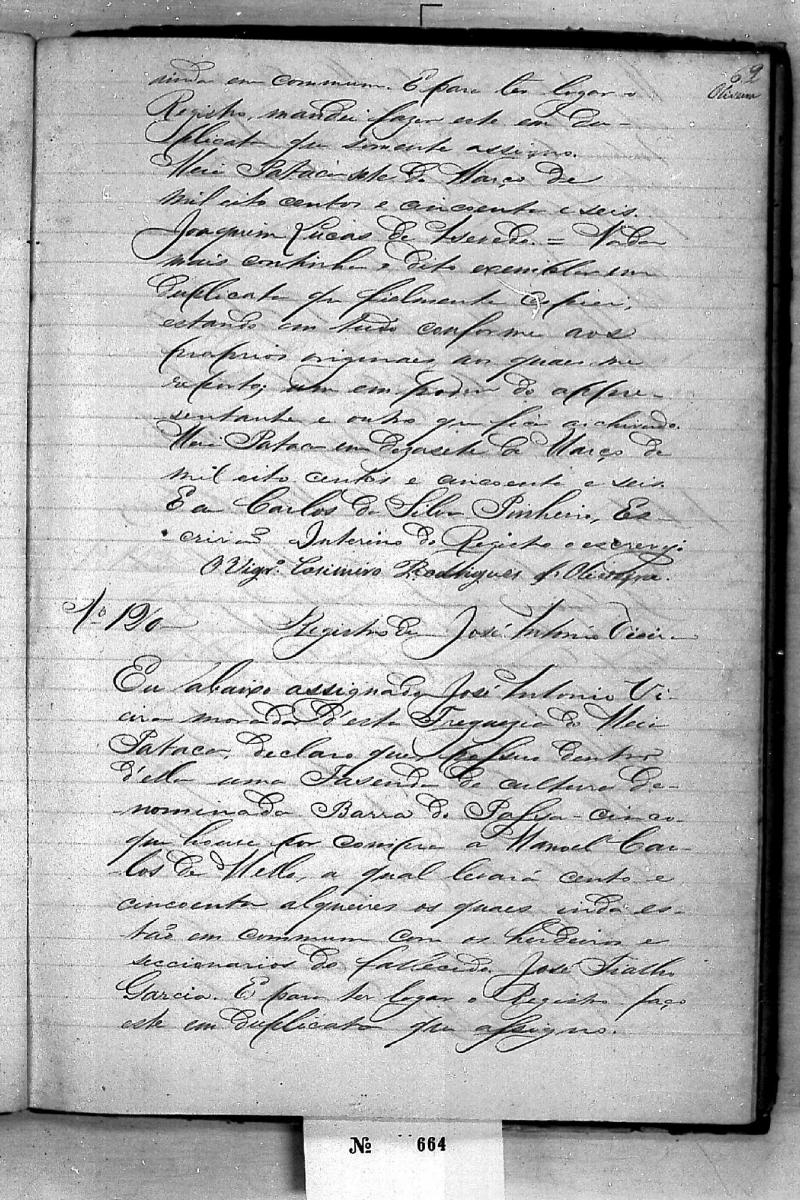 69
Oliveira
inda em commum. E para ter logar o
Registro, mandei fazer este em du-
plicata que somente assigno.
Meia Pataca sete de Março de
mil oito centos e cincoenta e seis.
Joaquim Lucas de Azeredo. = Nada
mais continha o dito exemplar em
duplicata que fielmente copiei,
estando em tudo conforme aos
proprios originaes aos quaes me
reporto; um em poder do appre-
sentante e outro que fica archivado.
Meia Pataca em dezasete de Março de
mil oito centos e cincoenta e seis.
Eu Carlos da Silva Pinheiro, Es-
crivaõ Interino do Registro o escrevi.
O Vigrº. Cassimiro Rodrigues d'Oliveira.
Nº 120 Registro de José Antonio Vieira
Eu abaixo assignado José Antonio Vi-
eira morador d'esta Freguezia do Meia
Pataca, declaro que possuo dentro
d'ella uma Fasenda de cultura de-
nominada Barra do Passa-cinco
que houve por compra a Manoel Car-
los de Mello, a qual levará cento e
cincoenta alqueires os quaes inda es-
tão em commum com os herdeiros e
seccionarios do fallecido José Fialho
Garcia. E para ter logar o Registro faço
este em duplicata que assigno.
Nº 664